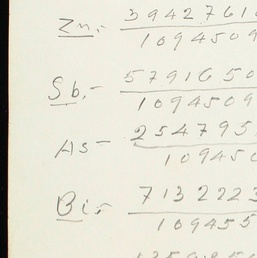 Zn,- 3942761
1094509
Sb,- 5791650
1094509
As- 254795
109450
Bi,- 7132223
109455